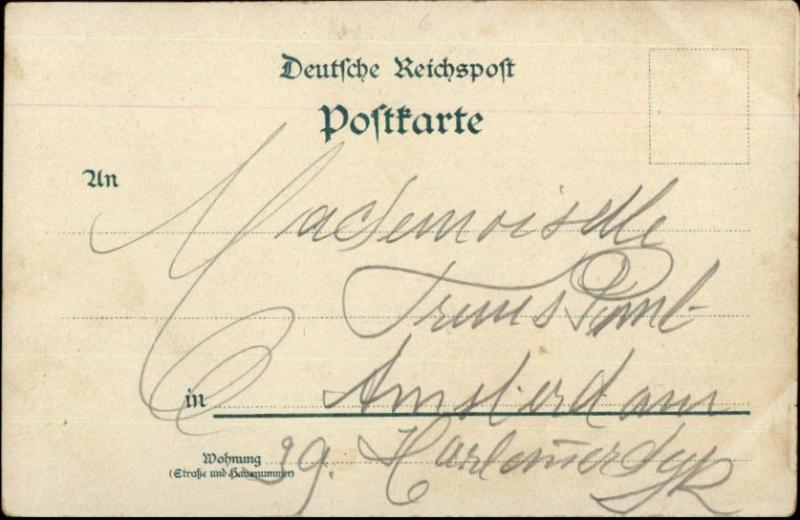 Deutsche Reichspost
Postkarte
An
Mademoiselle
Truus Pont
in Amsterdam
Wohnung
(Straße und Hausnummer)
29. Harlemerdyk